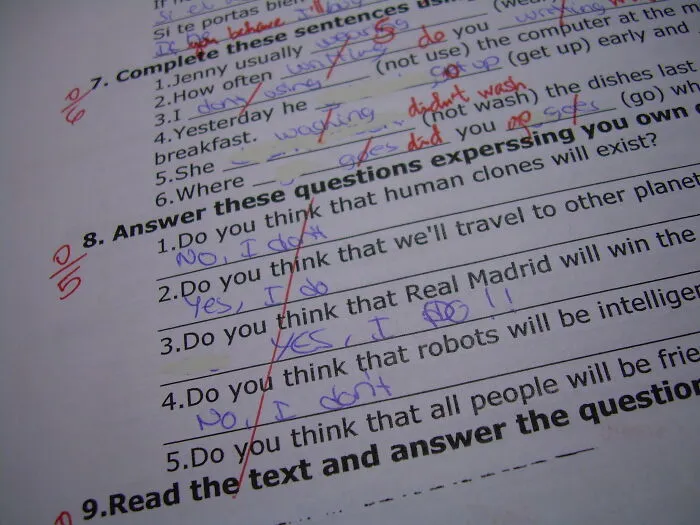 Si te portas bien
you behave I'll
7. Complete these sentences
1.Jenny usually
2.How often writting do you
0/6
3.I dont using (not use) the computer at the
4.Yesterday he got up (get up) early and
breakfast. didn't wash
5.She washing (not wash) the dishes last
6.Where goes did you go goes (go)
8. Answer these questions experssing you own
1.Do you think that human clones will exist?
No, I don't
0/5
2.Do you think that we'll travel to other planet
Yes, I do
3.Do you think that Real Madrid will win the
YES, I DO!!
4.Do you think that robots will be
No, I don't
5.Do you think that all people will be
9.Read the text and answer the